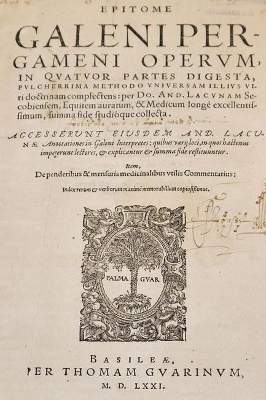 EPITOME
GALENI PER-
GAMENI OPERVM,
IN QVATVOR PARTES DIGESTA,
PVLCHERRIMA METHODO VNIVERSAM ILLIVS VI-
ri doctrinam complectens: per Do. AND. LACVNAM Se-
cobiensem, Equitem auratum, & Medicum longè excellentis-
simum, summa fide studioque collecta.
ACCESSERVNT EIVSDEM AND. LACV-
NÆ Annotationes in Galeni Interpretes: quibus varij loci, in quos hactenus
impegerunt lectores, & explicantur & summa fide restituuntur.
Item,
De ponderibus & mensuris medicinalibus vtilis Commentarius;
Index rerum & verborum maximè memorabilium copiosissimus.
PALMA GVAR
BASILEÆ,
PER THOMAM GVARINVM,
M. D. LXXI.